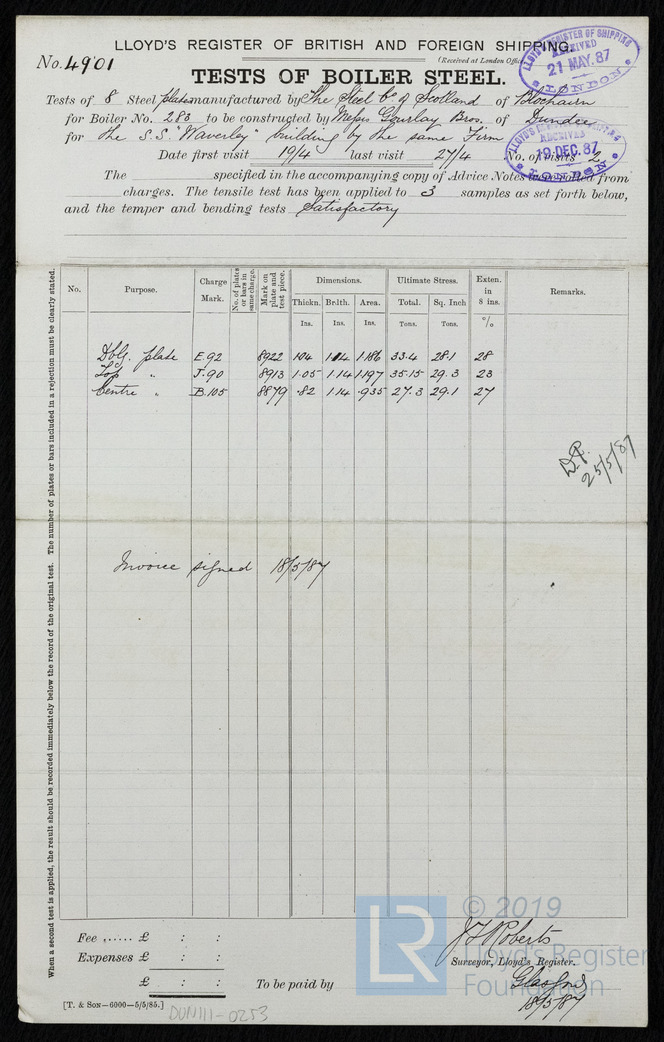 LLOYD'S REGISTER OF BRITISH AND FOREIGN SHIPPING.
No. 4901
(Received at London Office
LLOYD'S REGISTER OF SHIPPING
ARCHIVED
21 MAY. 87
LONDON
TESTS OF BOILER STEEL.
Tests of 8 Steel plates manufactured by The Steel Co of Scotland of Blochairn
for Boiler No. 283 to be constructed by Messrs Gourlay Bros. of Dundee
for the S.S. "Waverley" building by the same Firm
ARCHIVES
19 DEC. 87
LONDON
Date first visit 19/4 last visit 27/4 No. of visits 2
The specified in the accompanying copy of Advice Notes were rolled from
charges. The tensile test has been applied to 3 samples as set forth below,
and the temper and bending tests Satisfactory
When a second test is applied, the result should be recorded immediately below the record of the original test. The number of plates or bars included in a rejection must be clearly stated.
No. Purpose. Charge Mark. No. of plates or bars in same charge. Mark on plate and test piece. Dimensions. Ultimate Stress. Exten. in 8 ins. Remarks.
Thickn. Br'dth. Area. Total. Sq. Inch
Ins. Ins. Ins. Tons. Tons. %
Dblg. plate E.92 8922 1.04 1.14 1.186 33.4 28.1 28
Top " J.90 8913 1.05 1.14 1.197 35.15 29.3 23
Centre " B.105 8879 .82 1.14 .935 27.3 29.1 27
D.P.
25/5/87
Invoice signed 18/5/87
© 2019
LR
Lloyd's Register
Foundation
Fee ...... £ : :
Expenses £ : :
£ : : To be paid by
J T Roberts
Surveyor, Lloyd's Register.
Glasgow
18/5/87
[T. & SON—6000—5/5/85.]
DUN111-0253